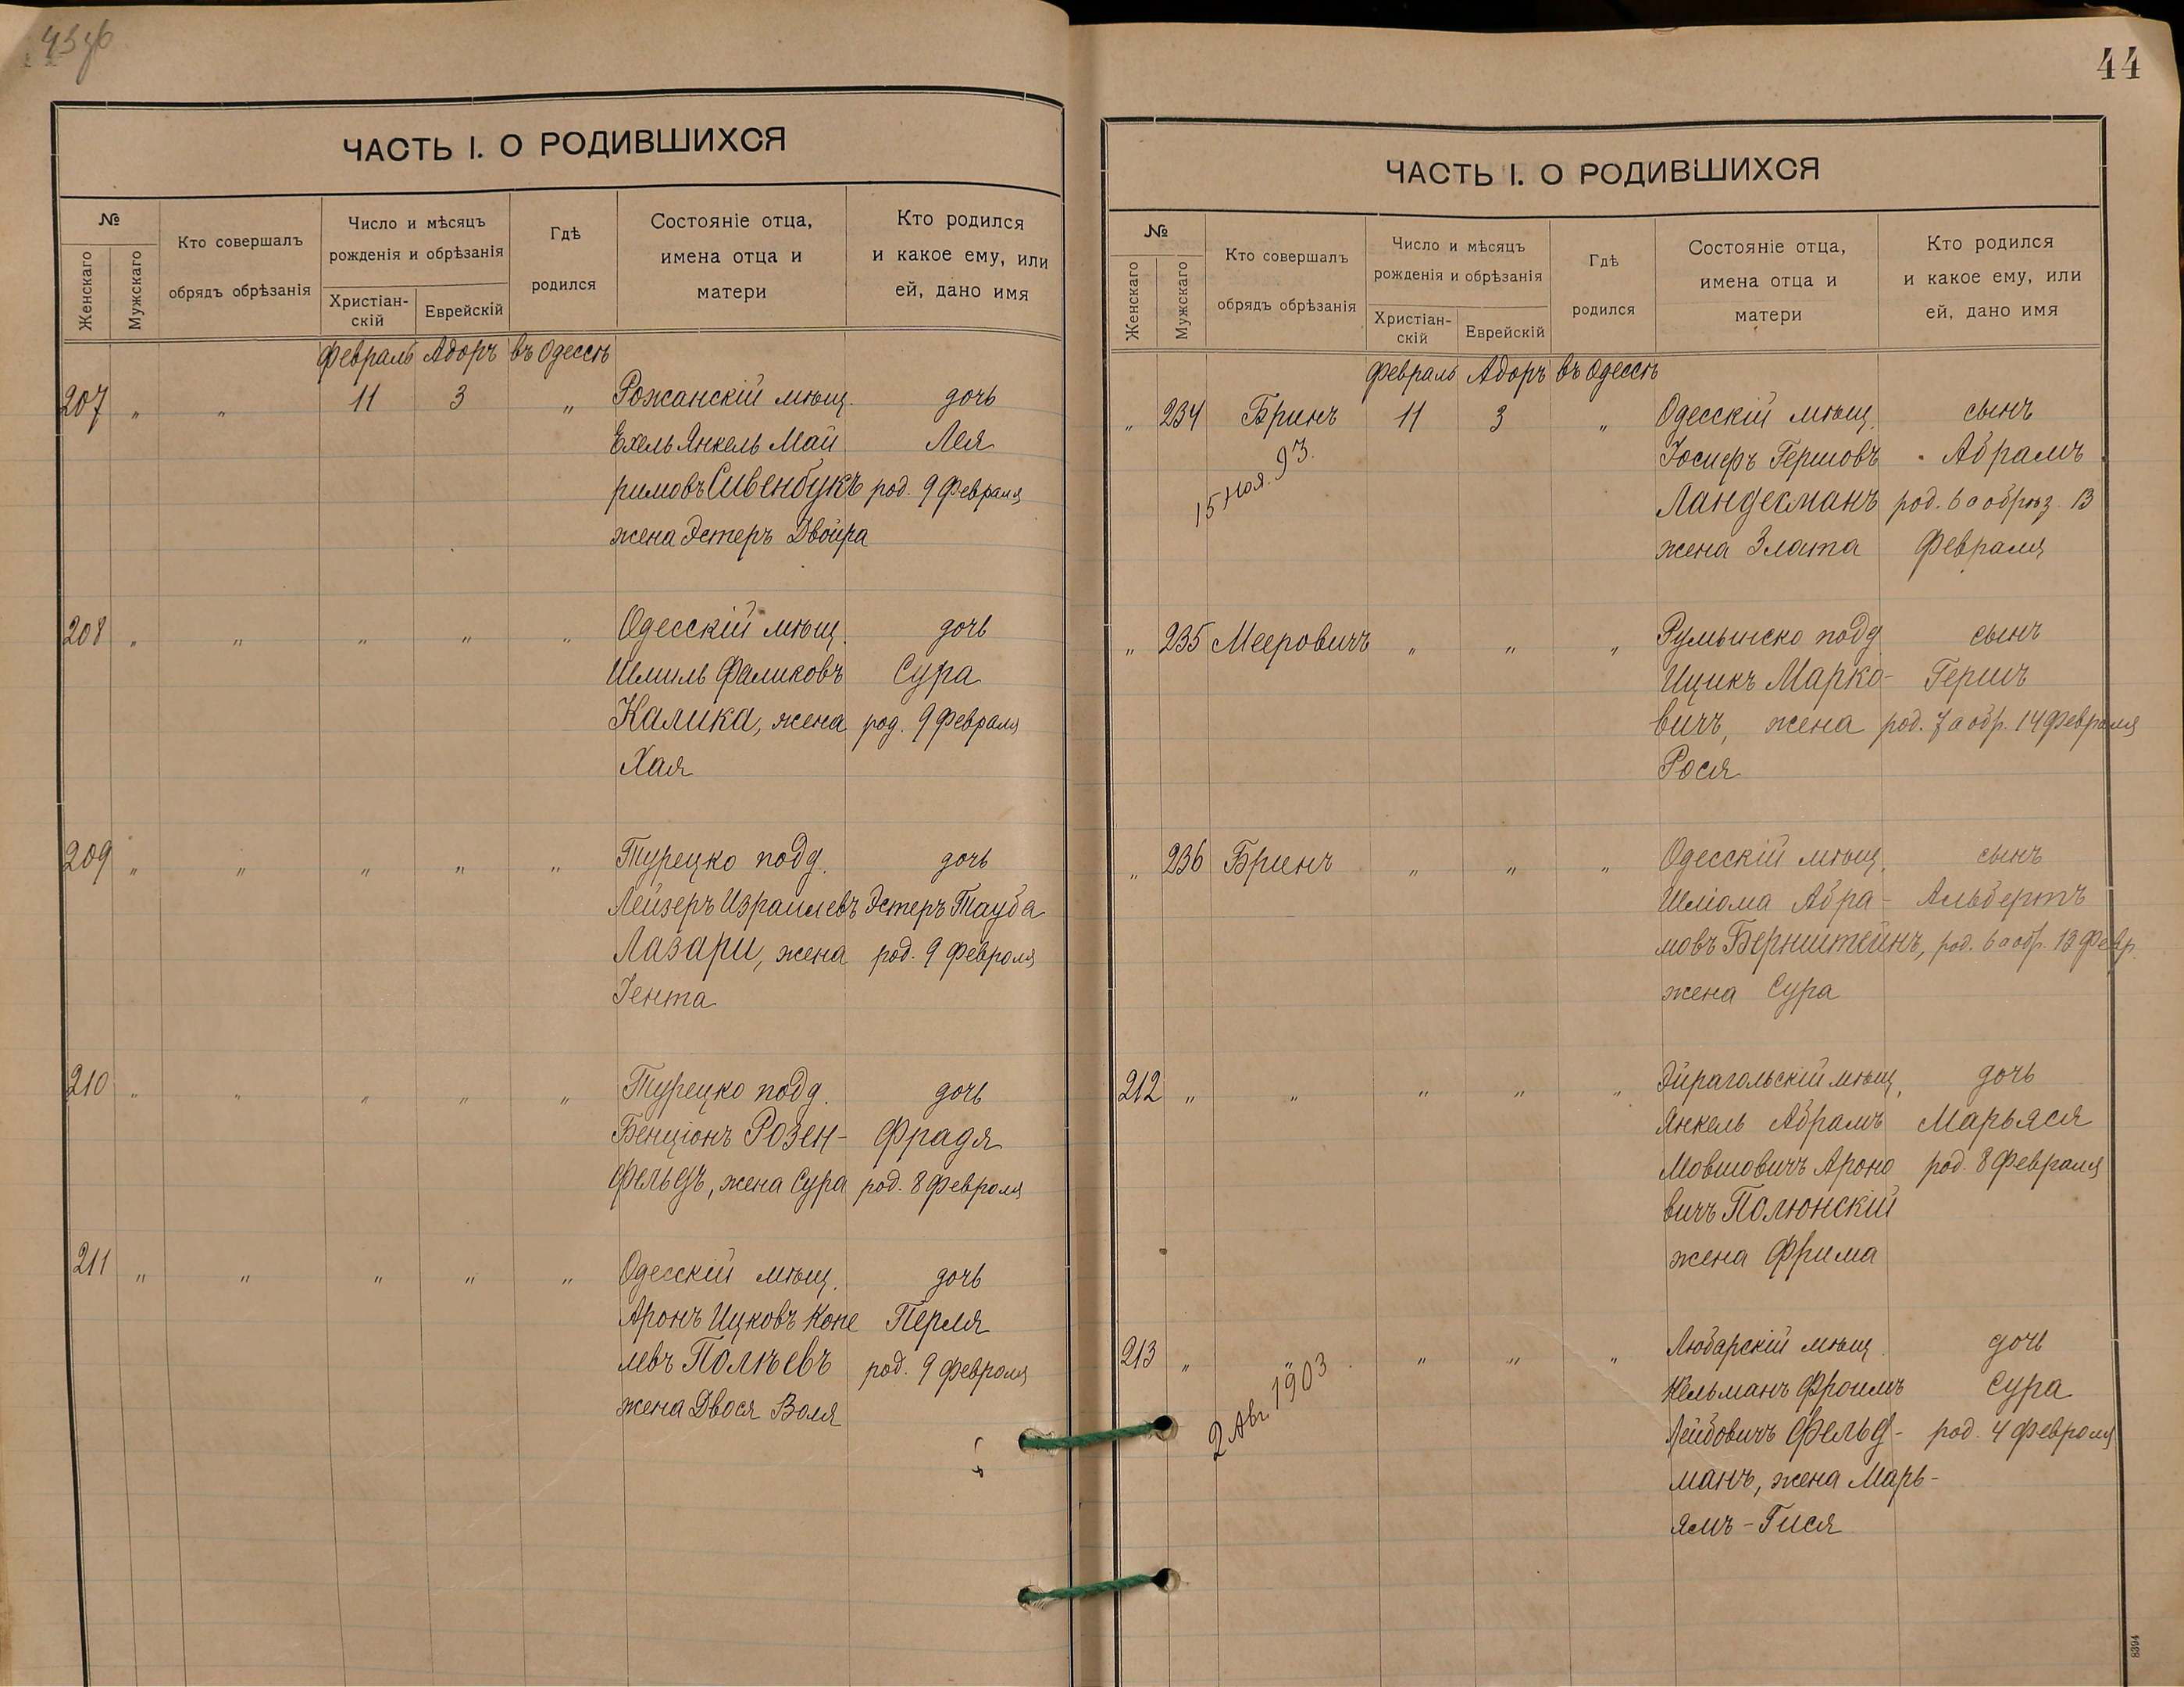 ЧАСТЬ I. О РОДИВШИХСЯ
№
Женскаго
Мужскаго
Кто совершалъ
обрядъ обрѣзанія
Число и мѣсяцъ
рожденія и обрѣзанія
Христіан-
скій
Еврейскій
Гдѣ
родился
Состояніе отца,
имена отца и
матери
Кто родился
и какое ему, или
ей, дано имя
Февраль Адоръ въ Одессѣ
207 „ „ 11 3 „ Рожанскій мѣщ. дочь
Ехель Янкель Май Лея
римовъ Сивенбукъ род. 9 Февраля
жена Эстеръ Двойра
208 „ „ „ „ „ Одесскій мѣщ. дочь
Шмиль Фаликовъ Сура
Калика, жена род. 9 Февраля
Хая
209 „ „ „ „ „ Турецко подд. дочь
Лейзеръ Израилевъ Эстеръ Тауба
Лазари, жена род. 9 Февраля
Іента
210 „ „ „ „ „ Турецко подд. дочь
Бенціонъ Розен- Фрадя
фельдъ, жена Сура род. 8 Февраля
211 „ „ „ „ „ Одесскій мѣщ. дочь
Аронъ Ицковъ Копе Перля
левъ Полѣевъ род. 9 Февраля
жена Двося Воля
44
ЧАСТЬ I. О РОДИВШИХСЯ
№
Женскаго
Мужскаго
Кто совершалъ
обрядъ обрѣзанія
Число и мѣсяцъ
рожденія и обрѣзанія
Христіан-
скій
Еврейскій
Гдѣ
родился
Состояніе отца,
имена отца и
матери
Кто родился
и какое ему, или
ей, дано имя
Февраль Адоръ въ Одессѣ
„ 234 Бринъ 11 3 „ Одесскій мѣщ. сынъ
Іосифъ Гершовъ Абрамъ
15 Ноя. 93.
Ландесманъ род. 6 а обрѣз. 13
жена Злата Февраля
„ 235 Мееровичъ „ „ „ Румынско подд. сынъ
Ицикъ Марко- Гершъ
вичъ, жена род. 7 а обр. 14 Февраля
Рося
„ 236 Бринъ „ „ „ Одесскій мѣщ. сынъ
Шліома Абра- Альбертъ
мовъ Бернштейнъ, род. 6 а обр. 13 Февр.
жена Сура
212 „ „ „ „ „ Эйрагольскій мѣщ. дочь
Янкель Абрамъ Марьяся
Мовшовичъ Ароно род. 8 Февраля
вичъ Полюнскій
жена Фрима
213 „ „ „ „ „ Любарскій мѣщ. дочь
Кельманъ Фроимъ Сура
2 Авг. 1903
Лейбовичъ Фельд- род. 4 Февраля
манъ, жена Марь-
ямъ-Гися
8394